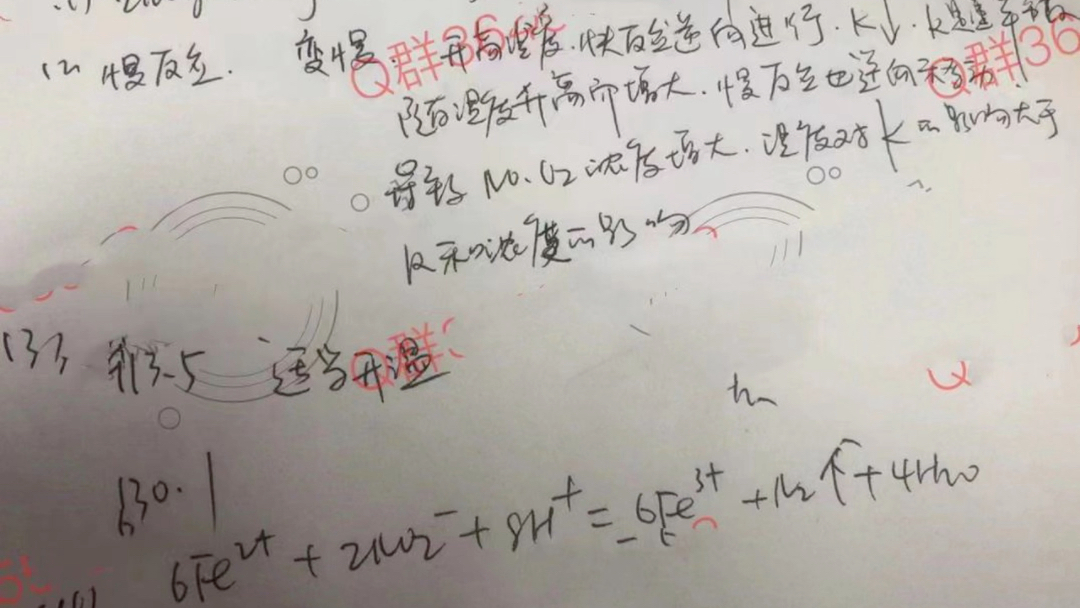 (2) 慢反应. 变慢. 升高温度.快反应逆向进行.K↓.k是速率
随着温度升高而增大.慢反应也逆向移动.
导致 NO.O2浓度增大.温度对K的影响大于
k和浓度的影响
Q群36
Q群36
(3) 适当升温
Q群
630.1
6Fe²⁺ + 2NO2⁻ + 8H⁺ = 6Fe³⁺ + N2↑ + 4H2O